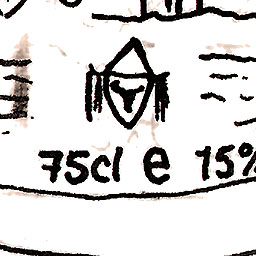 75cl e 15%